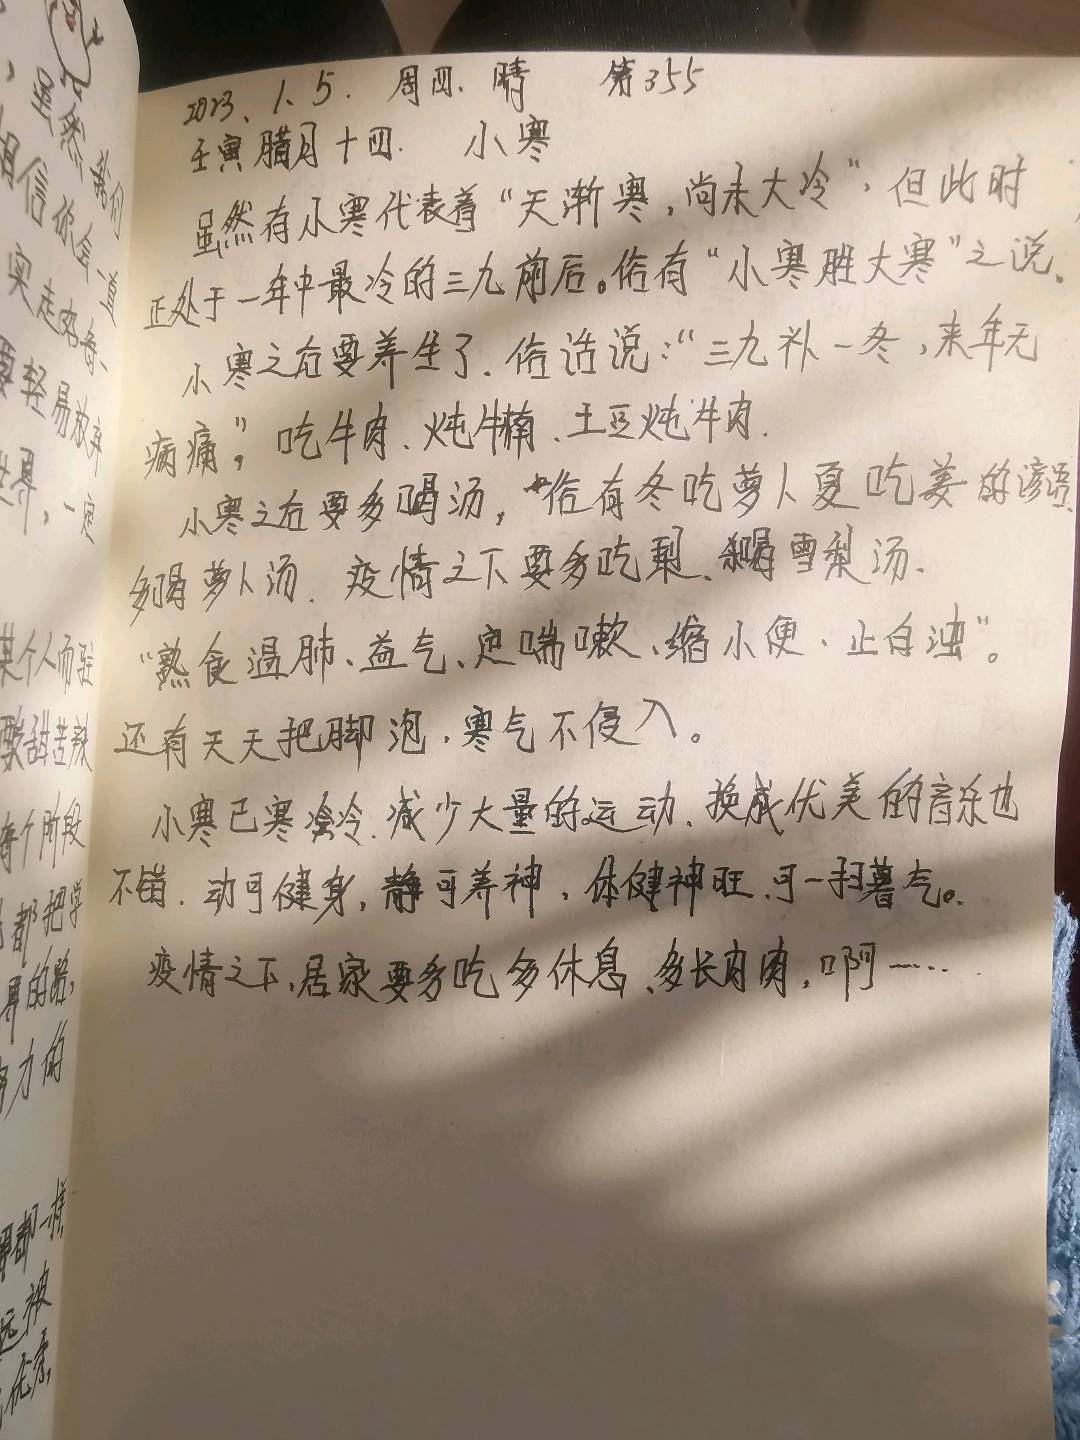 2023.1.5. 周四. 晴 第355
壬寅腊月十四. 小寒
虽然有小寒代表着“天渐寒,尚未大冷”,但此时,
正处于一年中最冷的三九前后。俗有“小寒胜大寒”之说。
小寒之后要养生了.俗话说:“三九补一冬,来年无
病痛”,吃牛肉、炖牛楠、土豆炖牛肉.
小寒之后要多喝汤,俗有冬吃萝卜夏吃姜的谚语.
多喝萝卜汤.疫情之下要多吃梨、喝雪梨汤.
“熟食温肺、益气、定喘嗽、缩小便、止白浊”。
还有天天把脚泡,寒气不侵入。
小寒已寒冷.减少大量的运动.换成优美的音乐也
不错.动可健身,静可养神,体健神旺.可一扫暮气。
疫情之下,居家要多吃多休息、多长肉肉,啊一……
虽然
相信你会一直
要轻易放弃
世界,一定
某个人而驻
酸甜苦辣
每个阶段
都把学
界的路,
努力的
都一样
远被